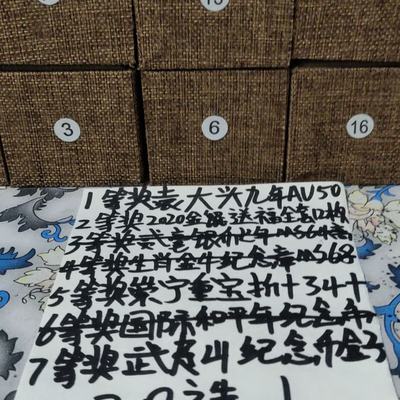 3
6
16
1等奖袁大头九年AU50
2等奖2020金银送福全套
3等奖 MS64
4等奖生肖金牛纪念 MS68
5等奖崇宁重宝折十34十
6等奖国际和平年纪念币
7等奖武夷山纪念币